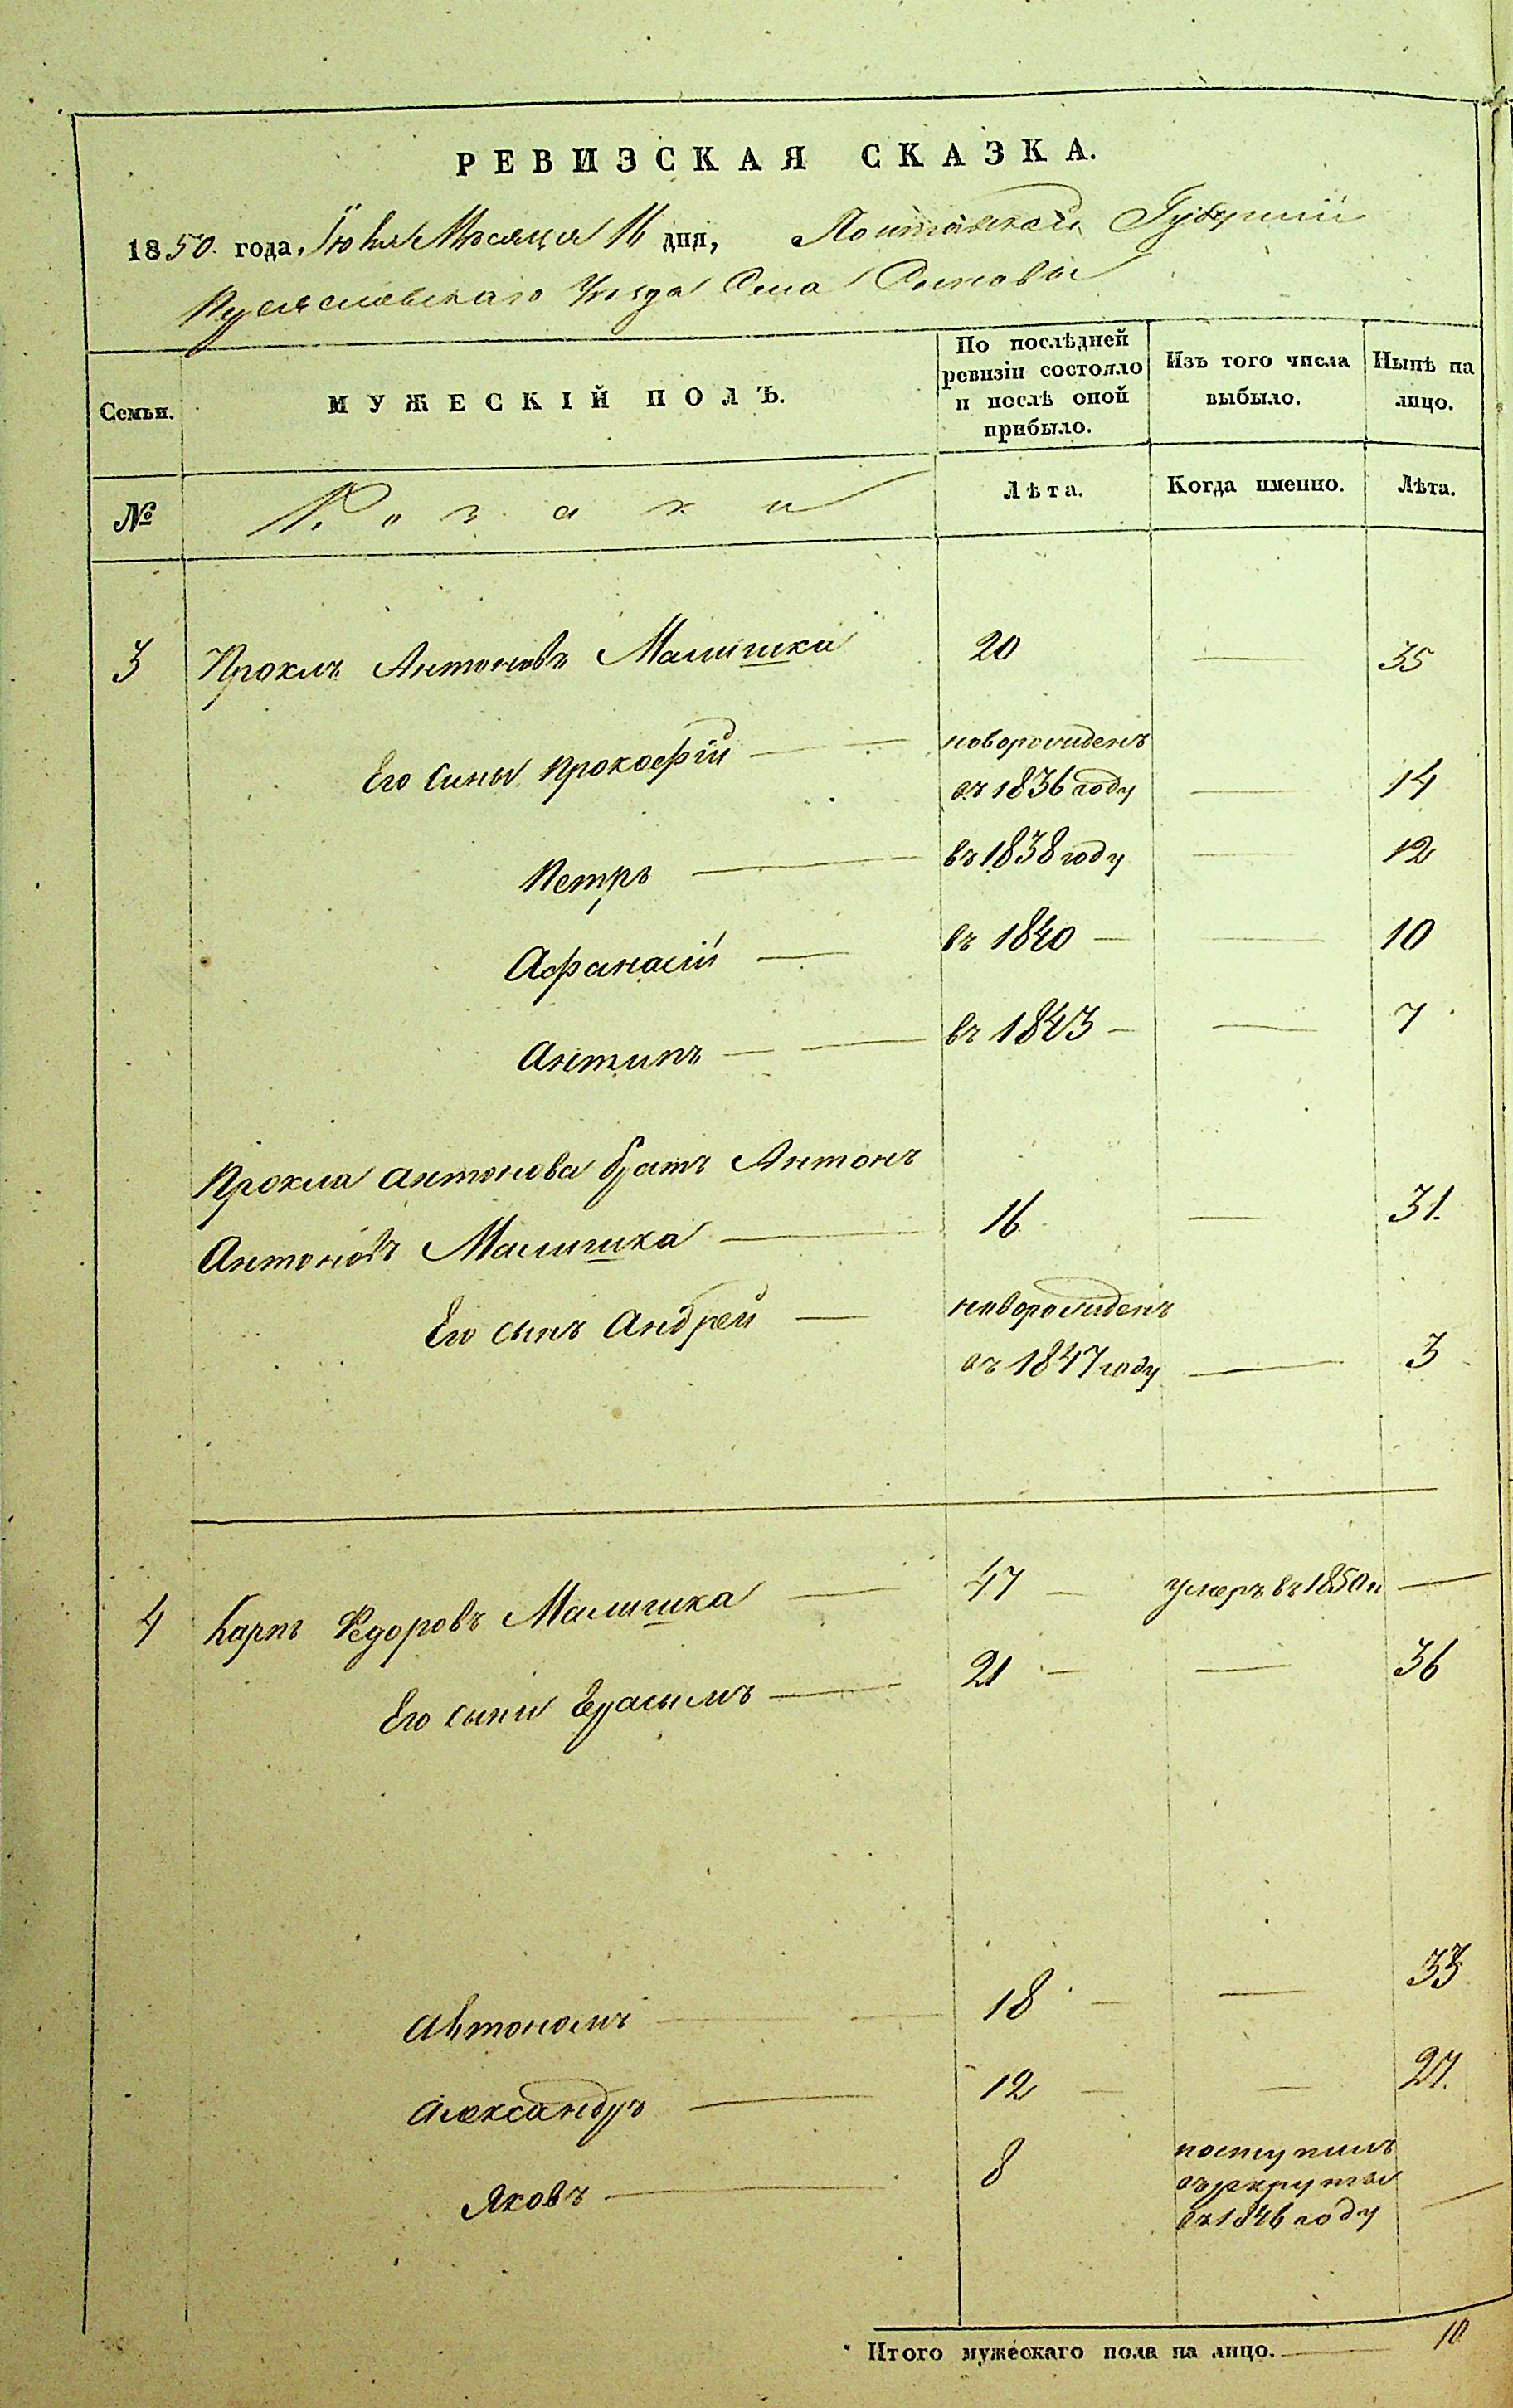 РЕВИЗСКАЯ СКАЗКА.
1850. года, Іюля Мѣсяца 16 дня, Полтавской Губерніи
Переяславскаго Уѣзда Села
Семьи.
МУЖЕСКІЙ ПОЛЪ.
По послѣдней ревизіи состояло и послѣ оной прибыло.
Изъ того числа выбыло.
Нынѣ на лицо.
№
Козаки
Лѣта.
Когда именно.
Лѣта.
3 Проклъ Антоновъ Малишка 20 — 35
Его сины Прокофій — — новорожденъ
въ 1836 году — 14
Петръ — въ 1838 году — 12
Афанасій — въ 1840 — — 10
Антипъ — — въ 1843 — — 7
Прокла Антонова братъ Антонъ
Антоновъ Малишка — 16 — 31.
Его сынъ Андрей — новорожденъ
въ 1847 году — 3
4 Карпъ Федоровъ Малишка — 47 — умеръ въ 1850 —
Его сыни Герасимъ — 21 — — 36
Автономъ — — 18 — — 33
Александръ — 12 — — 27.
Яковъ — 8 поступилъ
въ рекруты
въ 1846 году —
Итого мужескаго пола на лицо. — 10